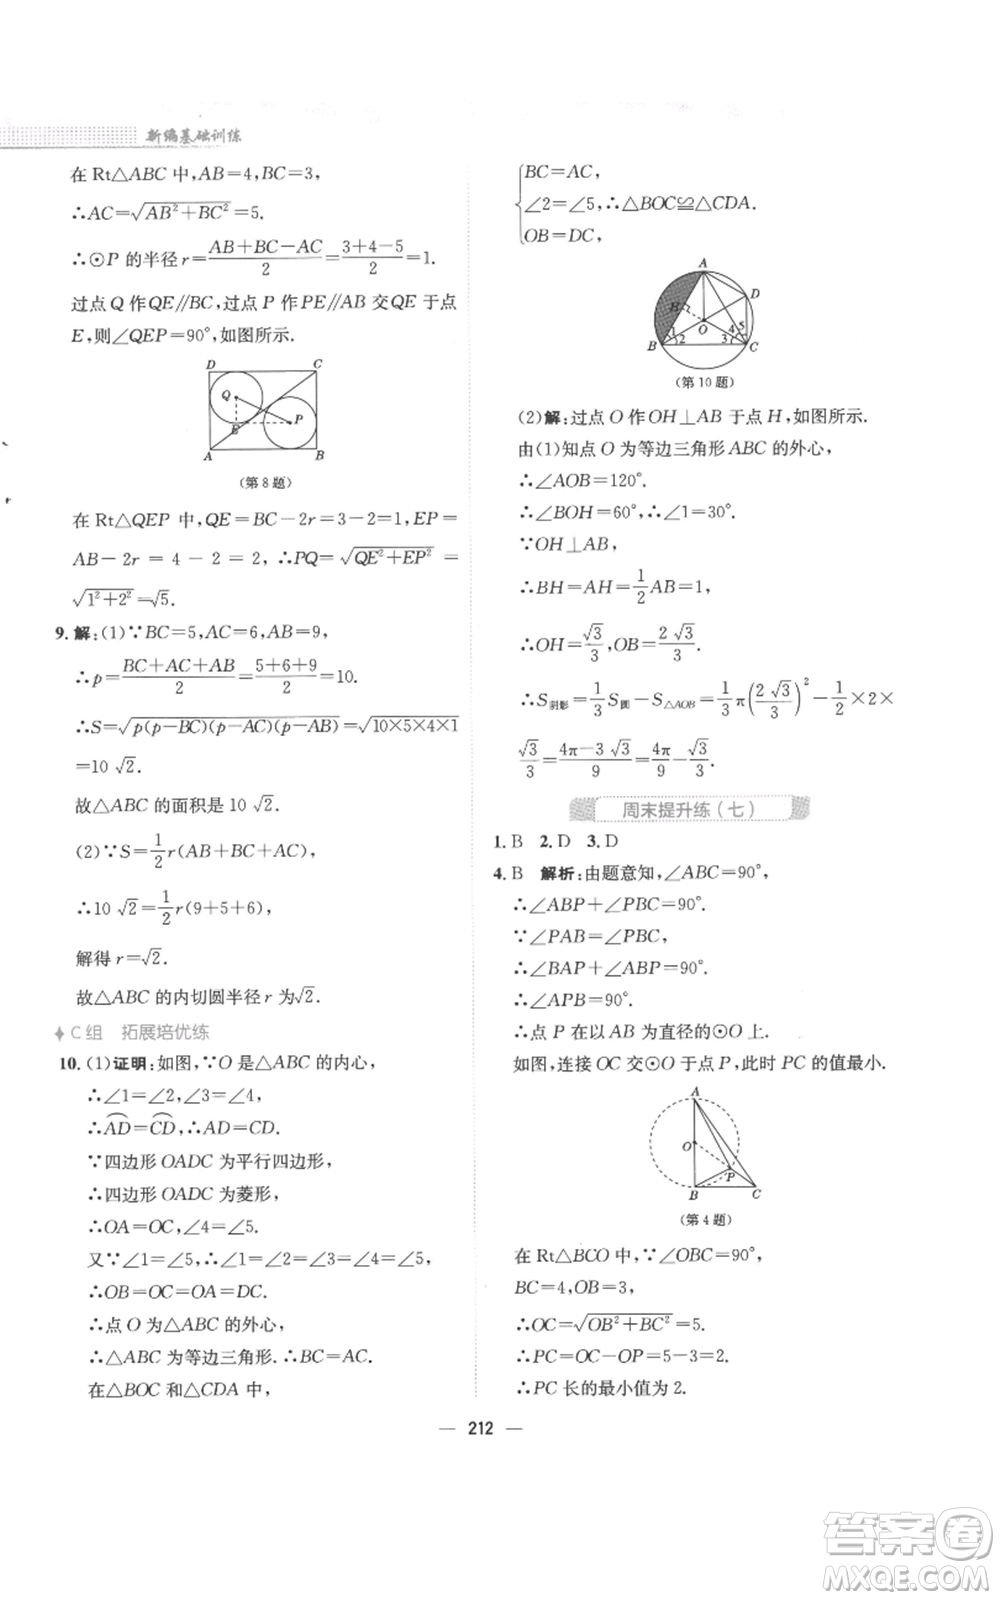 新编基础训练
在 Rt△ABC 中,AB=4,BC=3,
∴AC=√(AB²+BC²)=5.
∴⊙P 的半径 r=(AB+BC-AC)/2=(3+4-5)/2=1.
过点 Q 作 QE∥BC,过点 P 作 PE∥AB 交 QE 于点
E,则∠QEP=90°,如图所示.
D C
Q
E P
A B
(第 8 题)
在 Rt△QEP 中,QE=BC-2r=3-2=1,EP=
AB-2r=4-2=2,∴PQ=√(QE²+EP²)=
√(1²+2²)=√5.
9.解:(1)∵BC=5,AC=6,AB=9,
∴p=(BC+AC+AB)/2=(5+6+9)/2=10.
∴S=√(p(p-BC)(p-AC)(p-AB))=√(10×5×4×1)
=10√2.
故△ABC 的面积是 10√2.
(2)∵S=1/2 r(AB+BC+AC),
∴10√2=1/2 r(9+5+6),
解得 r=√2.
故△ABC 的内切圆半径 r 为√2.
C 组 拓展培优练
10.(1)证明:如图,∵O 是△ABC 的内心,
∴∠1=∠2,∠3=∠4,
∴⌒AD=⌒CD,∴AD=CD.
∵四边形 OADC 为平行四边形,
∴四边形 OADC 为菱形,
∴OA=OC,∠4=∠5.
又∵∠1=∠5,∴∠1=∠2=∠3=∠4,
∴OB=OC=OA=DC.
∴点 O 为△ABC 的外心,
∴△ABC 为等边三角形.∴BC=AC.
在△BOC 和△CDA 中,
BC=AC,
∠2=∠5,∴△BOC≌△CDA.
OB=DC,
A
D
H
O
B 1 2 3 4 5 C
(第 10 题)
(2)解:过点 O 作 OH⊥AB 于点 H,如图所示.
由(1)知点 O 为等边三角形 ABC 的外心,
∴∠AOB=120°.
∴∠BOH=60°,∴∠1=30°.
∵OH⊥AB,
∴BH=AH=1/2 AB=1,
∴OH=√3/3,OB=2√3/3.
∴S阴影=1/3 S圆-S△AOB=1/3 π(2√3/3)²-1/2×2×
√3/3=(4π-3√3)/9=4π/9-√3/3.
周末提升练(七)
1.B 2.D 3.D
4.B 解析:由题意知,∠ABC=90°,
∴∠ABP+∠PBC=90°.
∵∠PAB=∠PBC,
∴∠BAP+∠ABP=90°.
∴∠APB=90°.
∴点 P 在以 AB 为直径的⊙O 上.
如图,连接 OC 交⊙O 于点 P,此时 PC 的值最小.
A
O
P
B C
(第 4 题)
在 Rt△BCO 中,∵∠OBC=90°,
BC=4,OB=3,
∴OC=√(OB²+BC²)=5.
∴PC=OC-OP=5-3=2.
∴PC 长的最小值为 2.
— 212 —
答案卷
MXQE.COM